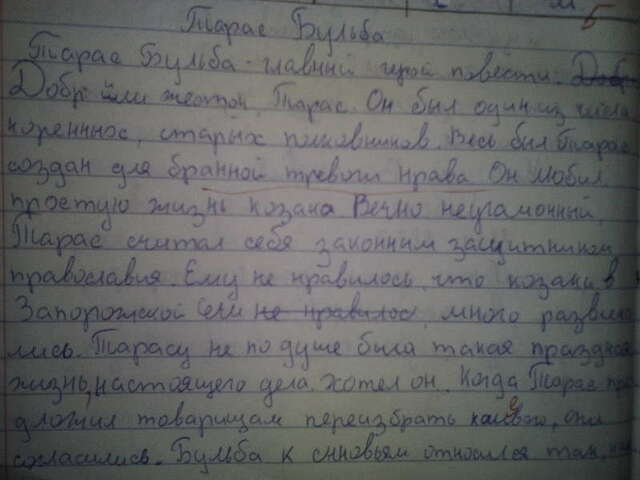 Тарас Бульба
5
Тарас Бульба - главный герой повести.
Добр или жесток Тарас. Он был один из числа
кореннных, старых полковников. Весь был Тарас
создан для бранной тревоги нрава Он любил
простую жизнь козака Вечно неугамонный,
Тарас считал себя законным защитником
православия. Ему не нравилось, что козаки в
Запорожской Сечи не нравилос, много развлека
лись. Тарасу не по душе была такая праздная
жизнь, настоящего дела хотел он. Когда Тарас пре
дложил товарищам переизбрать кошевого, они
согласились. Бульба к сыновьям относился так,